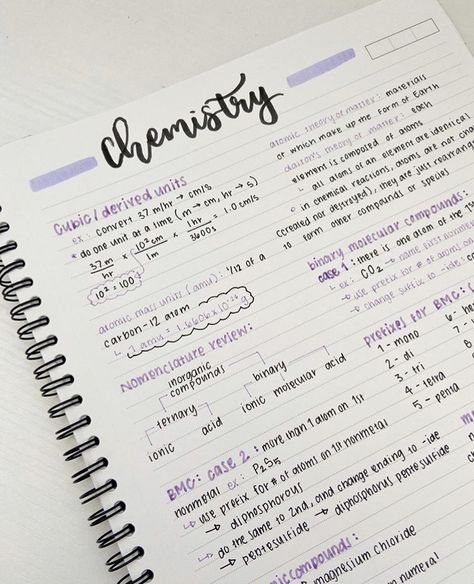 chemistry
cubic/derived units
ex: convert 37 m/hr → cm/s
* do one unit at a time (m → cm, hr → s)
37 m/hr × 10² cm/1m × 1hr/3600s = 1.0 cm/s
10² = 100
atomic mass units (amu): 1/12 of a
carbon-12 atom
1 amu = 1.6606 × 10⁻²⁴ g
Nomenclature review:
inorganic compounds
binary
ternary
ionic molecular acid
ionic acid
BMC: case 2: more than 1 atom on 1st
nonmetal ex: P₂S₅
use prefix for # of atoms on 1st nonmetal
→ diphosphorous
do the same to 2nd, and change ending to -ide
→ pentesulfide → diphosphorus pentesulfide
atomic theory of matter: materials
of which make up the form of Earth
dalton's theory of matter: each
element is composed of atoms
all atoms of an element are identical
in chemical reactions, atoms are not
(created nor destroyed), they are just
to form other compounds or species
binary molecular compounds:
case 1: there is one atom of the
ex: CO₂ → name first
use prefix for # of atoms
change suffix to -ide
prefixes for BMC:
1 - mono 6 -
2 - di 7 -
3 - tri
4 - tetra
5 - penta
compounds:
magnesium chloride